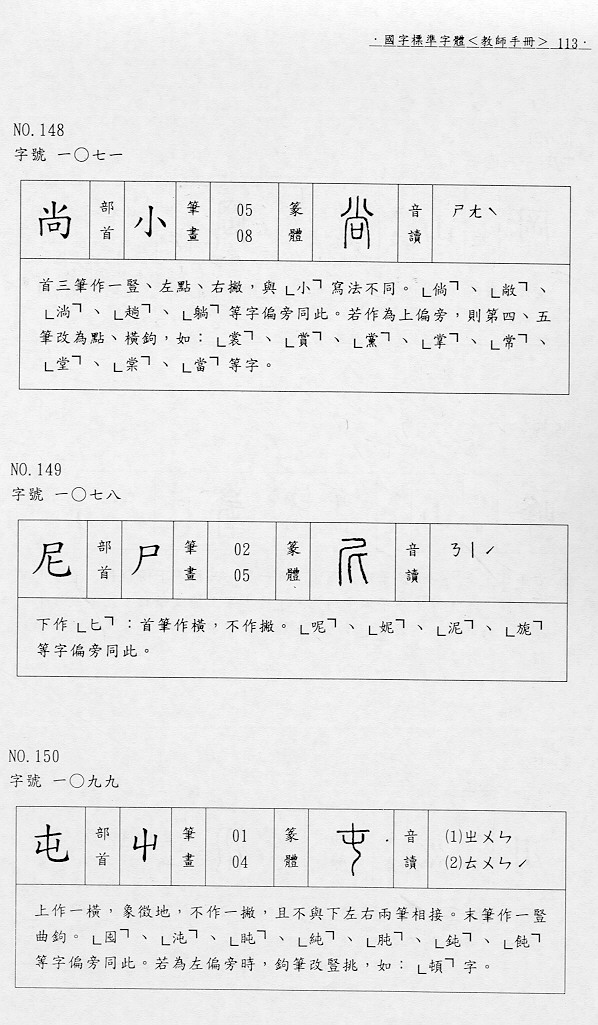 ·國字標準字體＜教師手冊＞ 113·
NO.148
字號 一〇七一
尚 部首 小 筆畫 05 08 篆體 尚 音讀 ㄕㄤˋ
首三筆作一豎、左點、右撇，與「小」寫法不同。「倘」、「敞」、
「淌」、「趟」、「躺」等字偏旁同此。若作為上偏旁，則第四、五
筆改為點、橫鉤，如：「裳」、「賞」、「黨」、「掌」、「常」、
「堂」、「棠」、「當」等字。
NO.149
字號 一〇七八
尼 部首 尸 筆畫 02 05 篆體 尼 音讀 ㄋㄧˊ
下作「匕」：首筆作橫，不作撇。「呢」、「妮」、「泥」、「旎」
等字偏旁同此。
NO.150
字號 一〇九九
屯 部首 屮 筆畫 01 04 篆體 屯 音讀 (1)ㄓㄨㄣ (2)ㄊㄨㄣˊ
上作一橫，象徵地，不作一撇，且不與下左右兩筆相接。末筆作一豎
曲鉤。「囤」、「沌」、「盹」、「純」、「肫」、「鈍」、「飩」
等字偏旁同此。若為左偏旁時，鉤筆改豎挑，如：「頓」字。